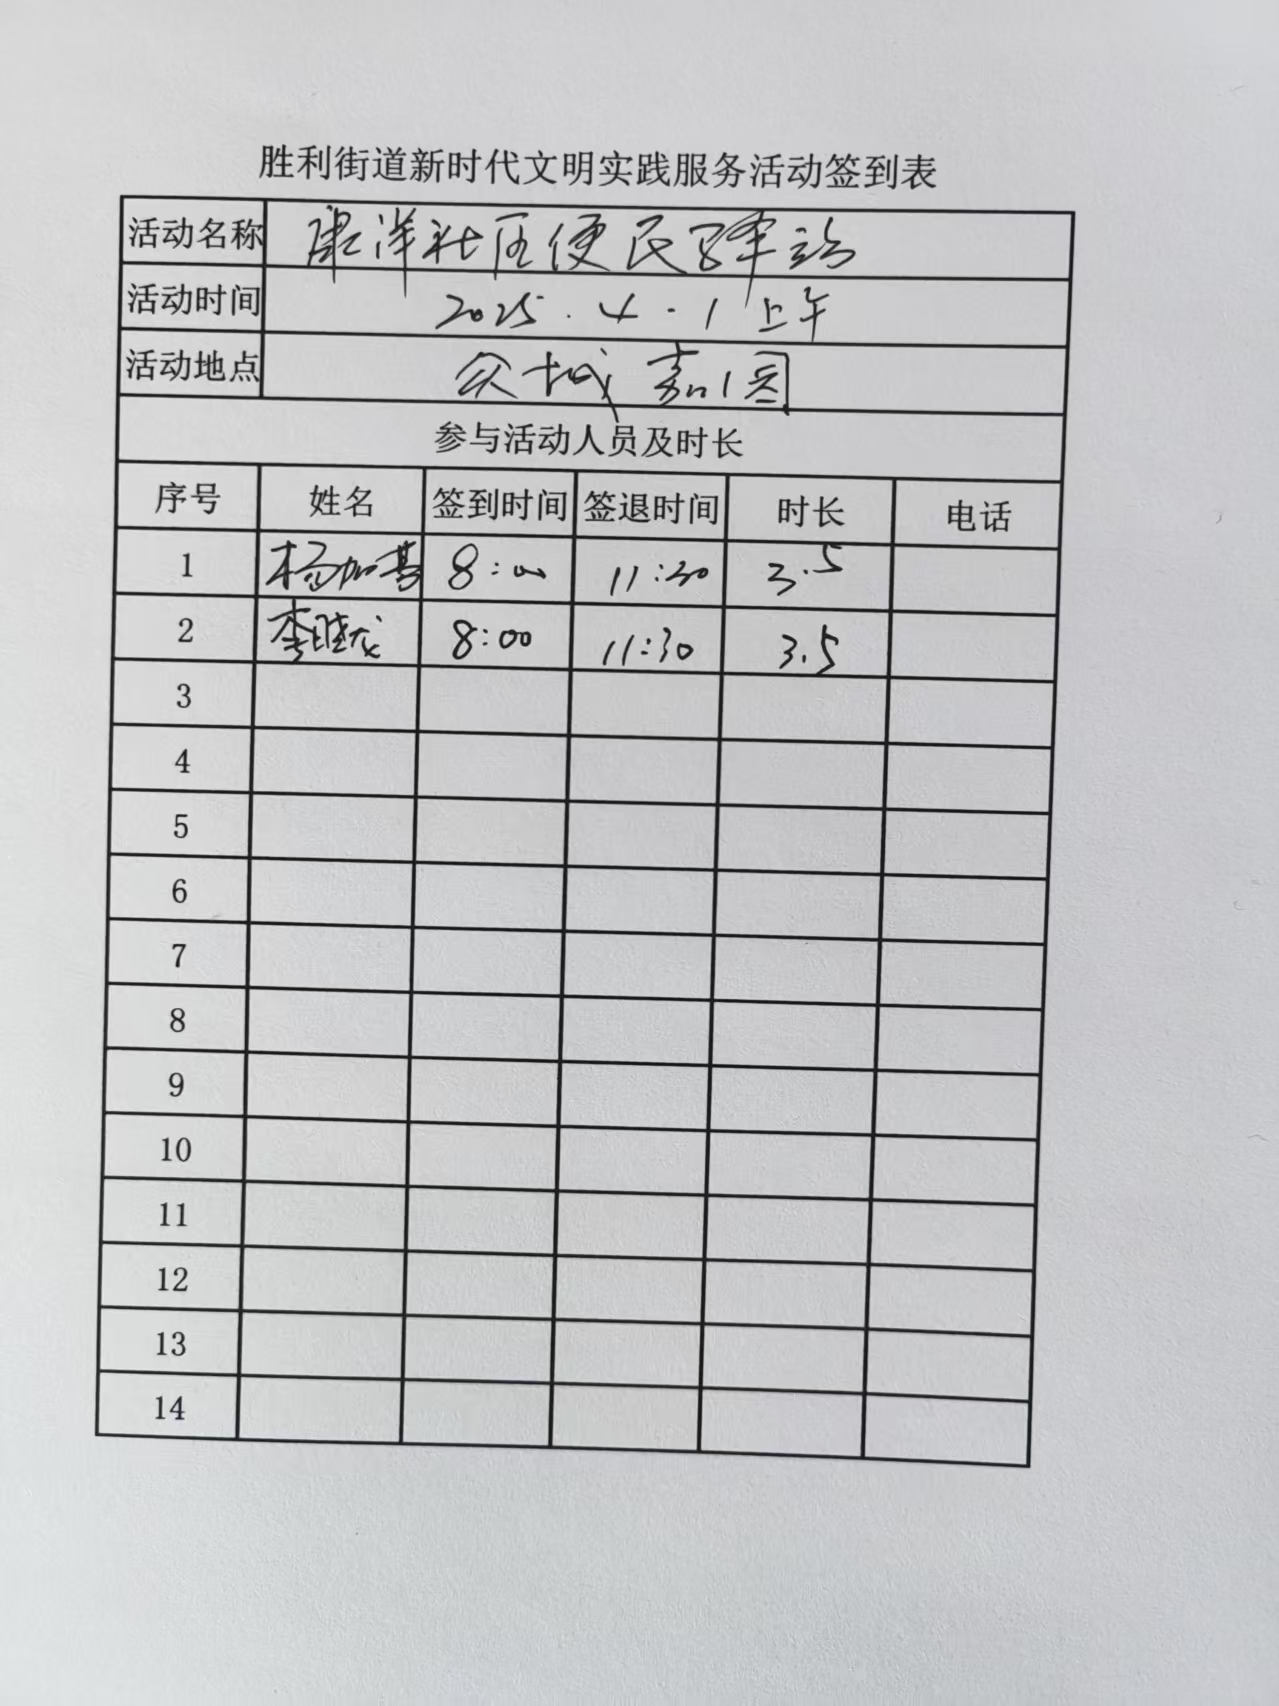 胜利街道新时代文明实践服务活动签到表
活动名称 康洋社区便民驿站
活动时间 2025.4.1上午
活动地点 众城嘉园
参与活动人员及时长
序号 姓名 签到时间 签退时间 时长 电话
1 杨加 8:00 11:30 3.5
2 李晓龙 8:00 11:30 3.5
3
4
5
6
7
8
9
10
11
12
13
14